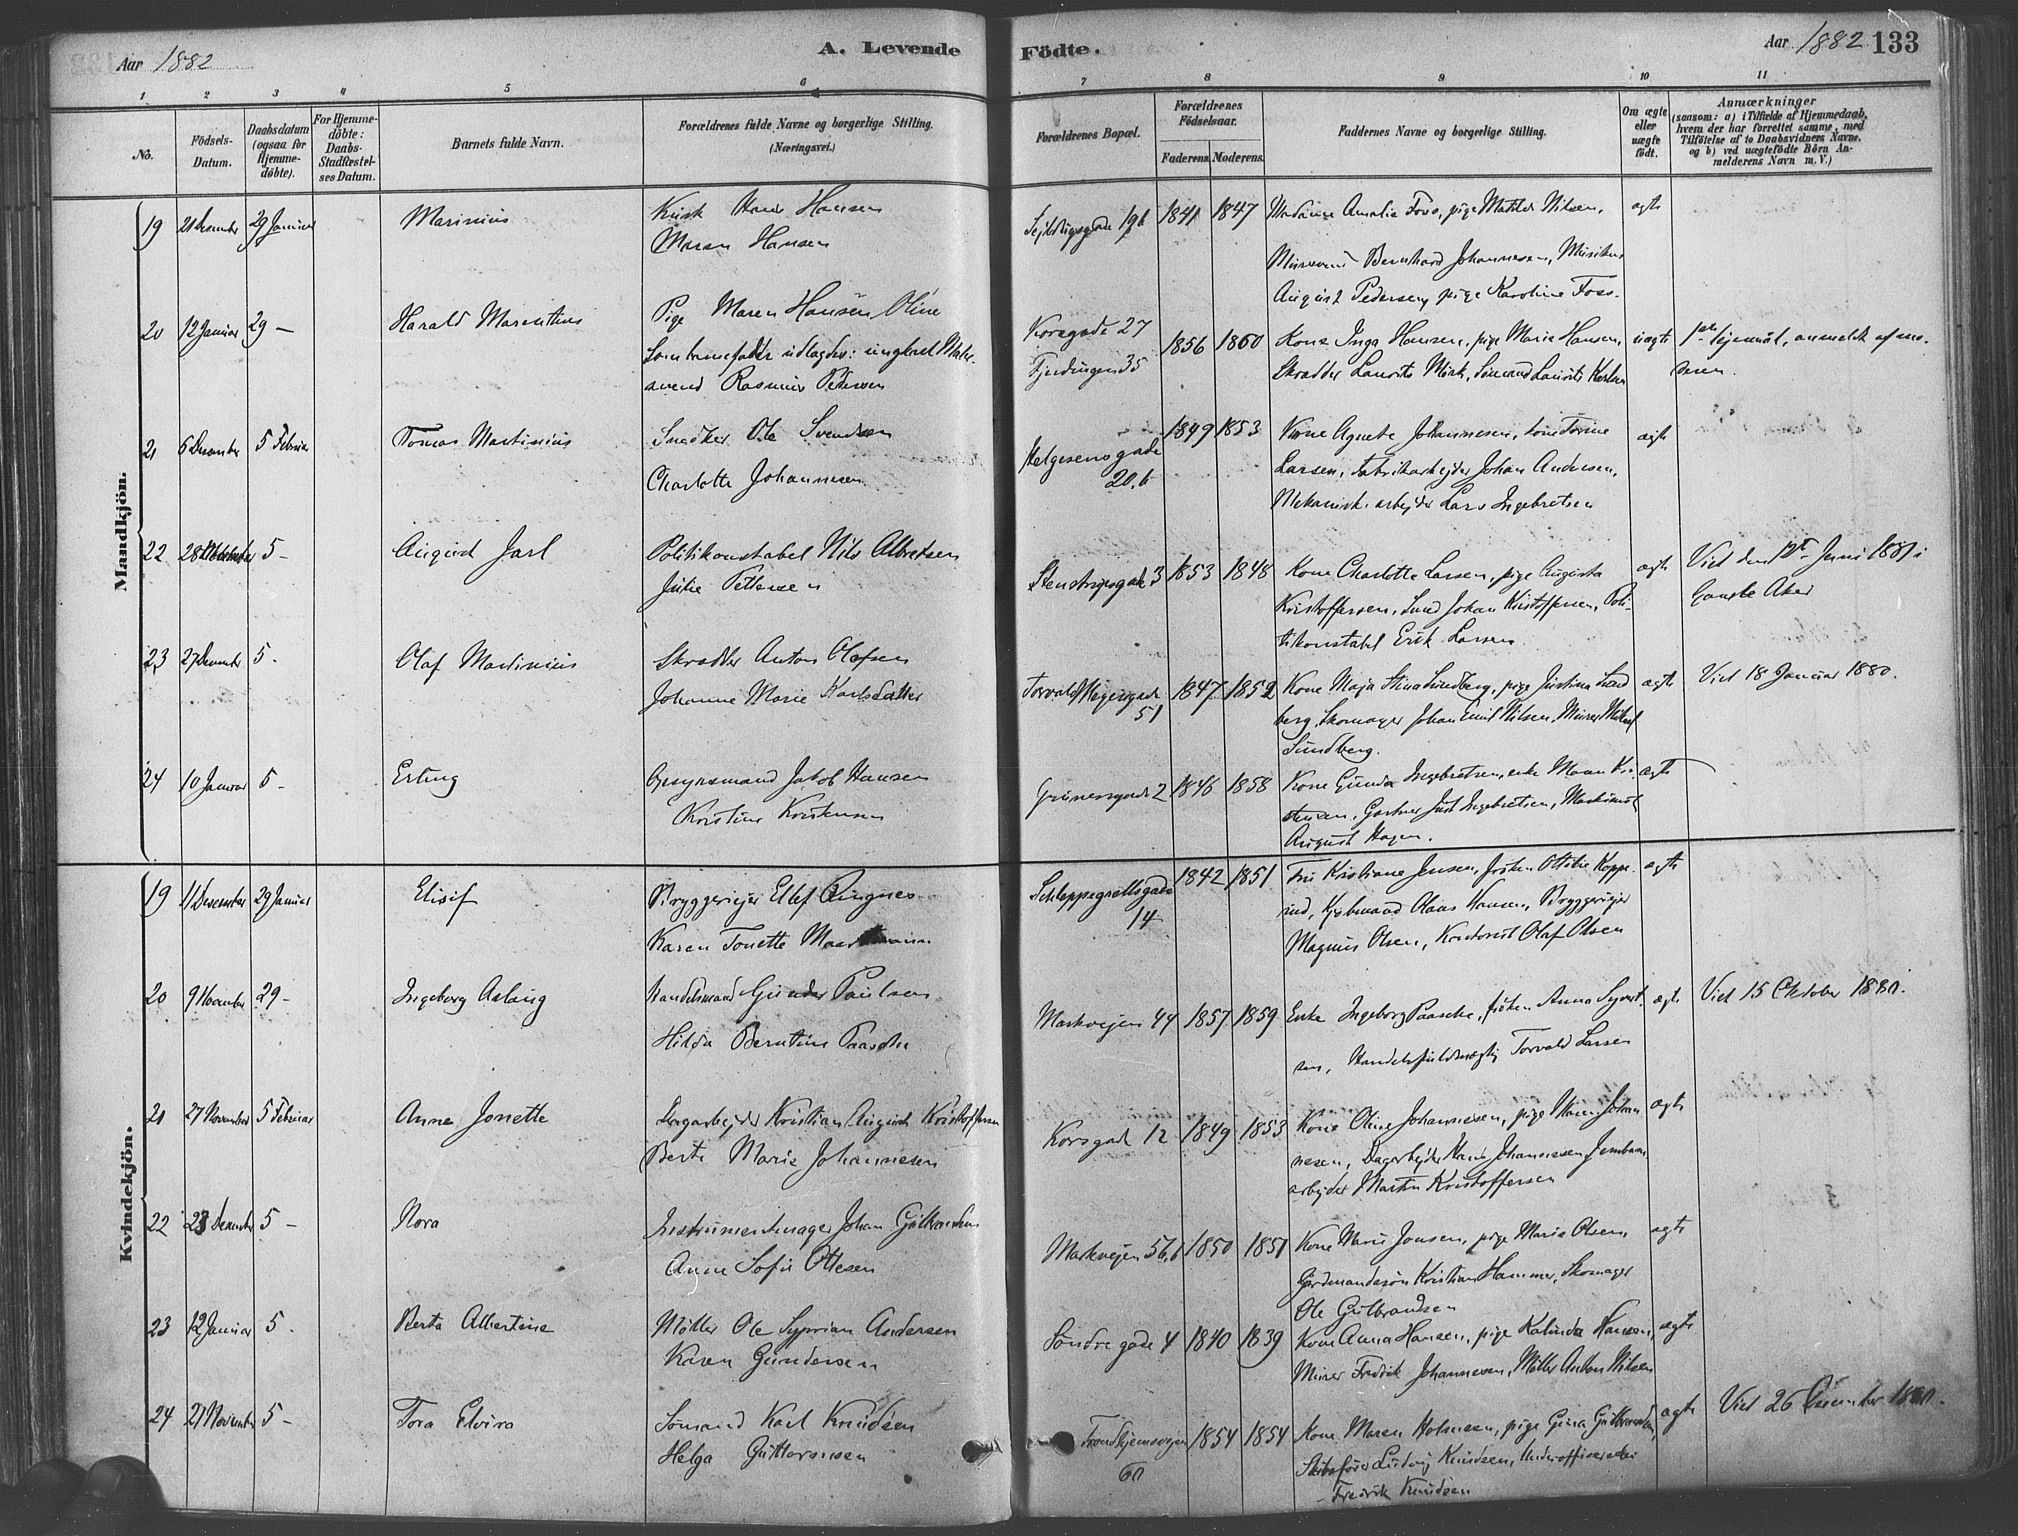 Aar 1882
A. Levende
Födte.
Aar 1882 133
1 2 3 4 5 6 7 8 9 10 11
No.
Födsels-Datum.
Daabsdatum (ogsaa for Hjemme-döbte).
For Hjemme-döbte: Daabs-Stadfæstel-ses Datum.
Barnets fulde Navn.
Forældrenes fulde Navne og borgerlige Stilling.
(Næringsvei.)
Forældrenes Bopæl.
Forældrenes Födselsaar.
Faderens. Moderens.
Faddernes Navne og borgerlige Stilling.
Om ægte eller uægte födt.
Anmærkninger
(saasom: a) i Tilfælde af Hjemmedaab,
hvem der har forrettet samme, med
Tilföielse af to Daabsvidners Navne.
og b) ved uægtefödte Börn An-
melderens Navn m. V.)
Mandkjön.
19 21 Desember 29 Januar Marinius
Kusk Hans Hansen
Maren Hansen
19b 1841 1847
Madame Amalie Foss, pige Matilde Nilsen,
Murersvend Bernhard Johannesen, Musikus
August Pedersen, pige Karoline Foss.
ægte
20 12 Januar 29 – Harald Marentius
Pige Maren Hansen Oline
Som barnefader udlagdes: ungkarl Maler-
svend Rasmus Petersen
Korsgade 27
Fjerdingen 35
1856 1860
Kone Inga Hansen, pige Marie Hansen,
Skrædder Laurits Mørk, Sømand Laurits Karlsen
uægte
1ste lejermål, anmeldt af mo-
deren.
21 6 Desember 5 Februar Tomas Martinius
Snedker Ole Svendsen
Charlotte Johannesen
Helgesensgade
20.b
1849 1853
Kone Agnete Johannesen, kone Torine
Larsen, Fabrikarbejder Johan Andersen,
Mekanisk arbejder Lars Ingebretsen
ægte
22 28 5 – August Jarl
Politikonstabel Nils Albretsen
Julie Pettersen
Stenstrupsgade 3 1853 1848
Kone Charlotte Larsen, pige Augusta
Kristoffersen, Smed Johan Kristoffersen, Poli-
tikonstabel Erik Larsen
ægte
Viet den 12te Juni 1881 i
Gamle Aker
23 27 Desember 5 – Olaf Martinius
Skrædder Anton Olafsen
Johanne Marie Karlsdatter
Torvald Meyersgade
51
1847 1852
Kone Maja Stina Sundberg, pige Justina Sund
berg, Skomager Johan Emil Nilsen, Murer Mikael
Sundberg.
ægte
Viet 18 Januar 1880.
24 10 Januar 5 – Erling
Opsynsmand Jakob Hansen
Kristine Kristensen
Grünersgade 2 1846 1858
Kone Gunda Ingebretsen, enke Maren Kri-
stensen, Gartner Just Ingebretsen, Maskinist
August Hagen.
ægte
Kvindekjön.
19 11 Desember 29 Januar Elisif
Bryggeriejer Ellef Ringnes
Karen Tonette
Schleppegrellsgade
14
1842 1851
Fru Kristiane Jensen, frøken Ottilie Koppe
rud, Kjøbmand Olaus Hansen, Bryggeriejer
Magnus Olsen, Kontorist Olaf Olsen
ægte
20 9 November 29 – Ingeborg Aslaug
Handelsmand Gunder Paulsen
Hilda Berntine Paasche
Markvejen 44 1857 1859
Enke Ingeborg Paasche, frøken Anna Syvert
sen, Handelsfuldmægtig Torvald Larsen
ægte
Viet 15 Oktober 1880.
21 27 November 5 Februar Anne Jonette
Dagarbejder Kristian August Kristoffersen
Berte Marie Johannesen
Korsgade 12 1849 1853
Kone Oline Johannesen, pige Maren Johan
nesen, Dagarbejder Hans Johannesen, Jernbane
arbejder Martin Kristoffersen
ægte
22 23 Desember 5 – Nora
Instrumentmager Johan Gulbrandsen
Anne Sofie Ottesen
Markvejen 56.b 1850 1851
Kone Marie Jonsen, pige Marie Olsen,
Gårdmandssøn Kristian Hammer, Skomager
Ole Gulbrandsen
ægte
23 12 Januar 5 – Berta Albertine
Møller Ole Syprian Andersen
Karen Gundersen
Søndregade 4 1840 1839
Kone Anna Hansen, pige Kalinda Hansen,
Murer Fredrik Johannesen, Møller Anton Nilsen
ægte
24 21 November 5 – Tora Elvira
Sømand Karl Knudsen
Helga Guttormsen
Trondhjemsvejen
60
1854 1854
Kone Maren Holmsen, pige Gina Gulbrandsen,
Skibsfører Ludvig Knudsen,
Fredrik Knudsen
ægte
Viet 26 Desember 1880.